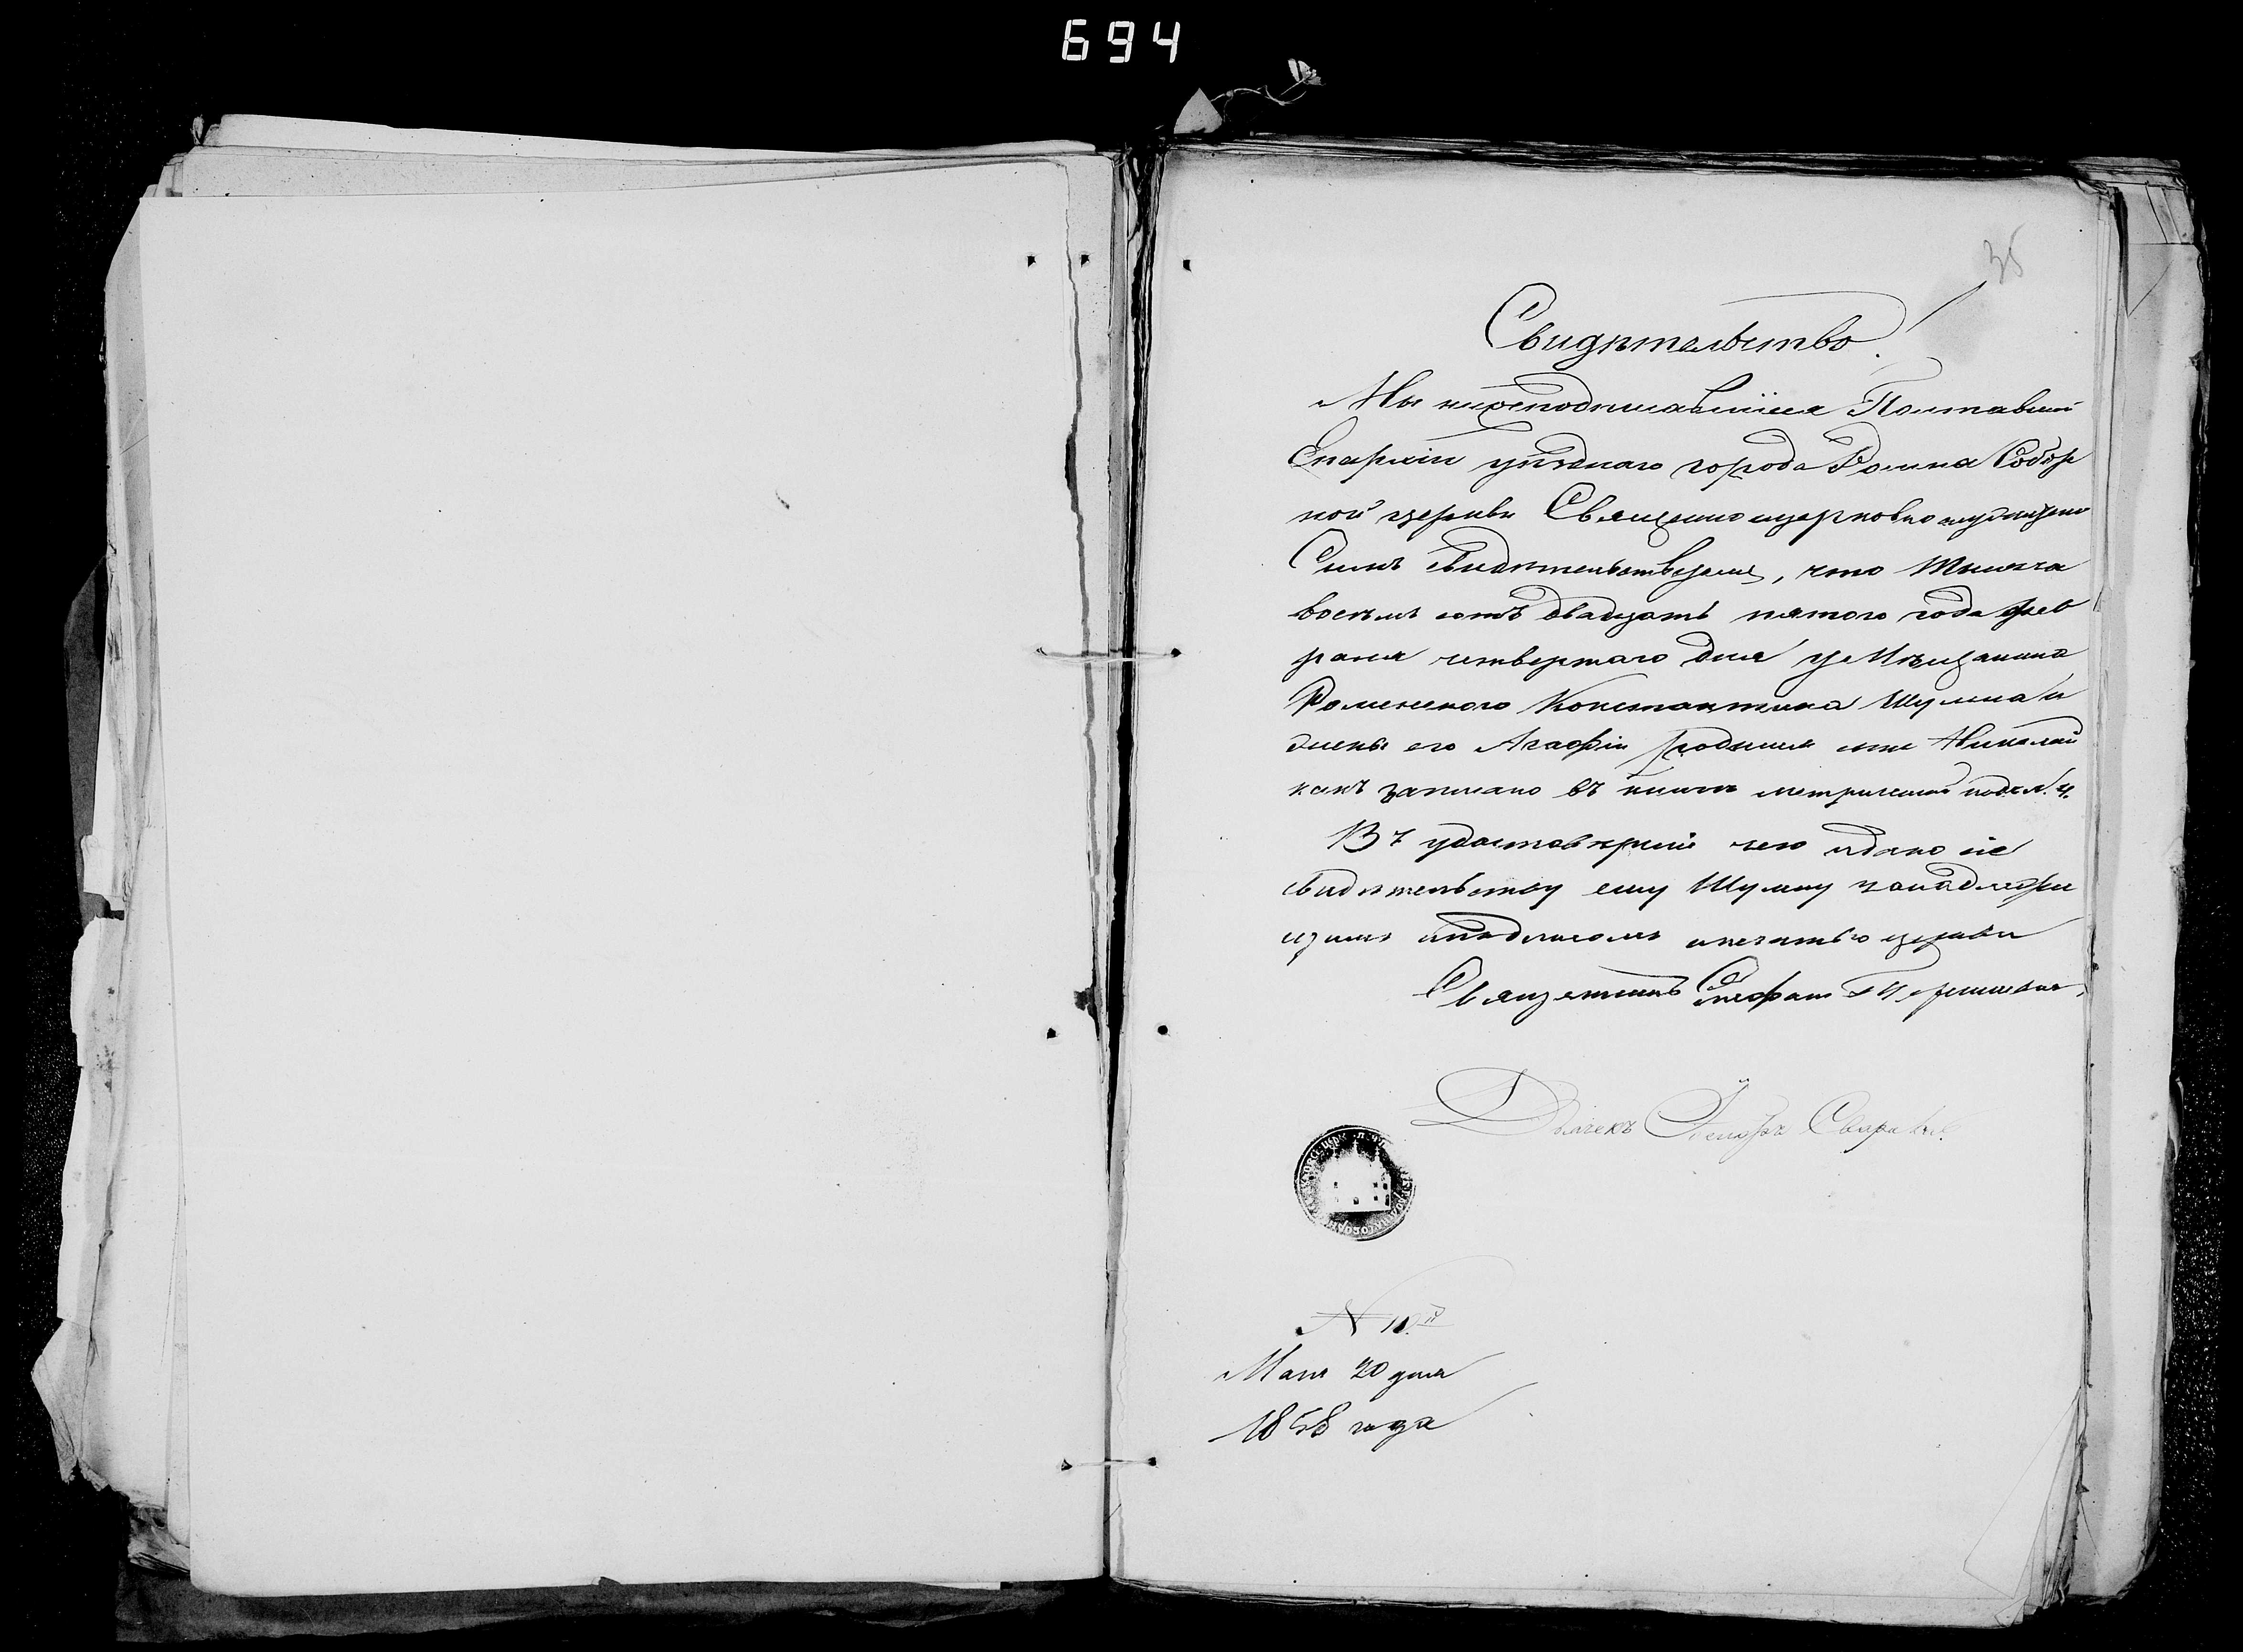 694
35
Свидѣтельство.
Мы нижеподписавшіися Полтавской
Епархіи уѣзднаго города Ромна Собор
ной церкви Священно церковно служители
Симъ свидѣтельствуемъ, что Тысяча
восемь сотъ двадцать пятого года Фев
раля четвертаго дня у Мѣщанина
Роменского Константина Шулма и
жены его Агафіи родился сынъ Николай
какъ записано въ книги метрической подъ №. 4.
Въ удостовѣреніи чего и дано сіе
свидѣтельство ему Шулму за надлежа
щимъ подписомъ и печатью церкви
Священникъ Стефанъ
Дьячекъ
№
Мая 20 дня
1858 года